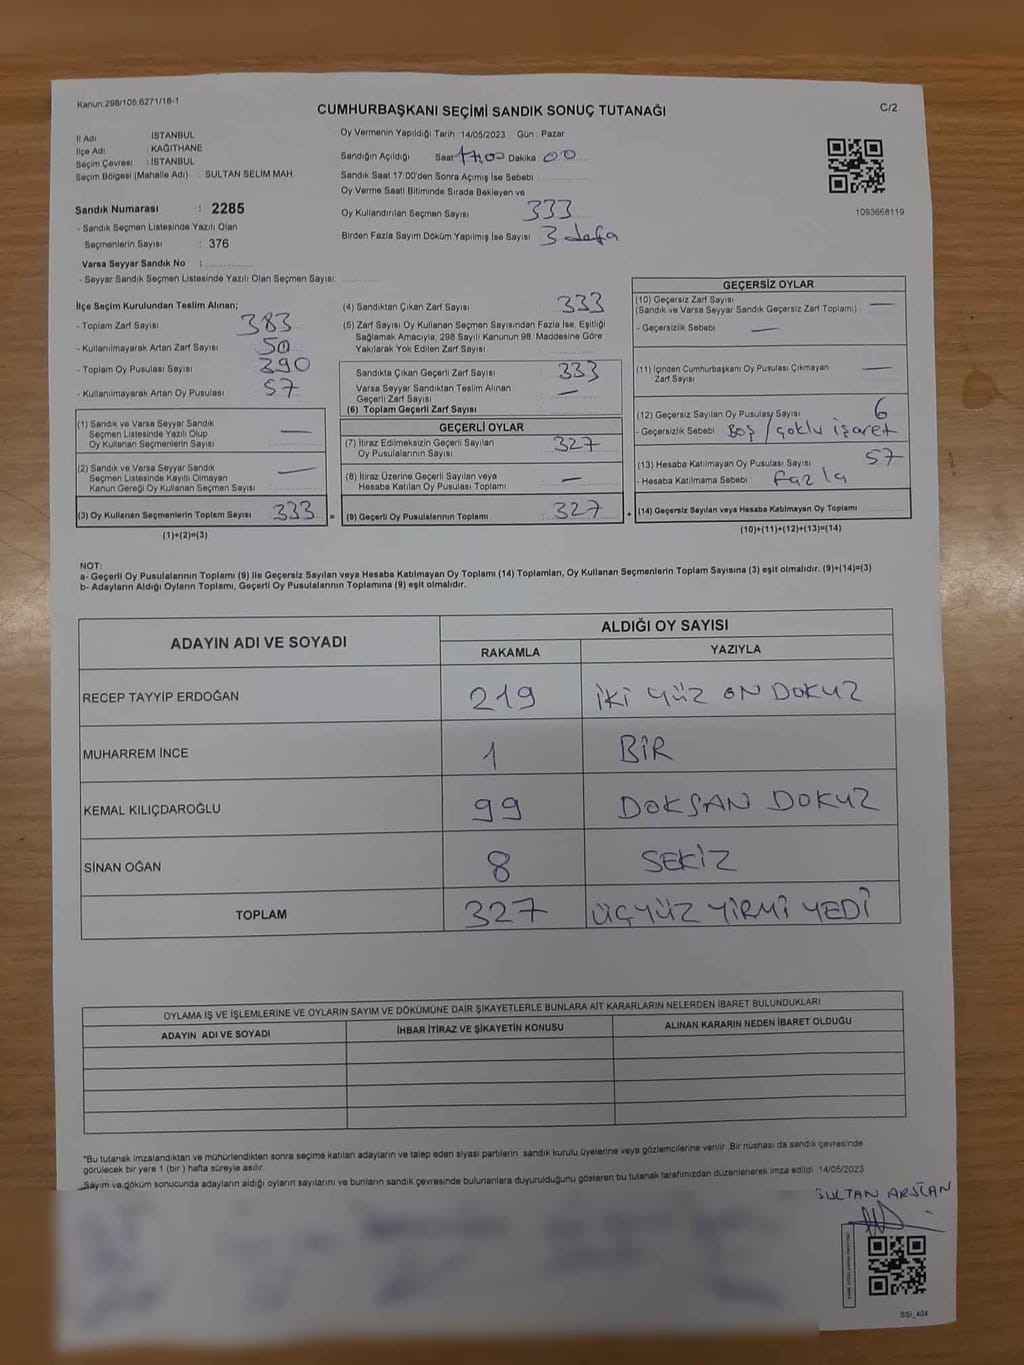 Kanun:298/105,6271/18-1
CUMHURBAŞKANI SEÇİMİ SANDIK SONUÇ TUTANAĞI
C/2
İl Adı : İSTANBUL
İlçe Adı : KAĞITHANE
Seçim Çevresi : İSTANBUL
Seçim Bölgesi (Mahalle Adı) : SULTAN SELİM MAH.
Oy Vermenin Yapıldığı Tarih :14/05/2023 Gün : Pazar
Sandığın Açıldığı Saat 17:00 Dakika 00
Sandık Saat 17:00'den Sonra Açımış İse Sebebi :
Oy Verme Saati Bitiminde Sırada Bekleyen ve
Oy Kullandırılan Seçmen Sayısı 333
Birden Fazla Sayım Döküm Yapılmış İse Sayısı : 3 defa
1093668119
Sandık Numarası : 2285
- Sandık Seçmen Listesinde Yazılı Olan
Seçmenlerin Sayısı : 376
Varsa Seyyar Sandık No :
- Seyyar Sandık Seçmen Listesinde Yazılı Olan Seçmen Sayısı:
İlçe Seçim Kurulundan Teslim Alınan;
- Toplam Zarf Sayısı 383
- Kullanılmayarak Artan Zarf Sayısı 50
- Toplam Oy Pusulası Sayısı 390
- Kullanılmayarak Artan Oy Pusulası 57
(1) Sandık ve Varsa Seyyar Sandık
Seçmen Listesinde Yazılı Olup
Oy Kullanan Seçmenlerin Sayısı : —
(2) Sandık ve Varsa Seyyar Sandık
Seçmen Listesinde Kayıtlı Olmayan
Kanun Gereği Oy Kullanan Seçmen Sayısı : —
(3) Oy Kullanan Seçmenlerin Toplam Sayısı 333 =
(1)+(2)=(3)
(4) Sandıktan Çıkan Zarf Sayısı : 333
(5) Zarf Sayısı Oy Kullanan Seçmen Sayısından Fazla İse, Eşitliği
Sağlamak Amacıyla, 298 Sayılı Kanunun 98. Maddesine Göre
Yakılarak Yok Edilen Zarf Sayısı :
Sandıkta Çıkan Geçerli Zarf Sayısı : 333
Varsa Seyyar Sandıktan Teslim Alınan
Geçerli Zarf Sayısı : —
(6) Toplam Geçerli Zarf Sayısı :
GEÇERLİ OYLAR
(7) İtiraz Edilmeksizin Geçerli Sayılan
Oy Pusulalarının Sayısı : 327
(8) İtiraz Üzerine Geçerli Sayılan veya
Hesaba Katılan Oy Pusulası Toplamı : —
(9) Geçerli Oy Pusulalarının Toplamı : 327 +
GEÇERSİZ OYLAR
(10) Geçersiz Zarf Sayısı
(Sandık ve Varsa Seyyar Sandık Geçersiz Zarf Toplamı) : —
- Geçersizlik Sebebi : —
(11) İçinden Cumhurbaşkanı Oy Pusulası Çıkmayan
Zarf Sayısı : —
(12) Geçersiz Sayılan Oy Pusulası Sayısı : 6
- Geçersizlik Sebebi : Boş / çoklu işaret
(13) Hesaba Katılmayan Oy Pusulası Sayısı : 57
- Hesaba Katılmama Sebebi : fazla
(14) Geçersiz Sayılan veya Hesaba Katılmayan Oy Toplamı :
(10)+(11)+(12)+(13)=(14)
NOT:
a- Geçerli Oy Pusulalarının Toplamı (9) ile Geçersiz Sayılan veya Hesaba Katılmayan Oy Toplamı (14) Toplamları, Oy Kullanan Seçmenlerin Toplam Sayısına (3) eşit olmalıdır. (9)+(14)=(3)
b- Adayların Aldığı Oyların Toplamı, Geçerli Oy Pusulalarının Toplamına (9) eşit olmalıdır.
ADAYIN ADI VE SOYADI
ALDIĞI OY SAYISI
RAKAMLA YAZIYLA
RECEP TAYYİP ERDOĞAN 219 İKİ YÜZ ON DOKUZ
MUHARREM İNCE 1 BİR
KEMAL KILIÇDAROĞLU 99 DOKSAN DOKUZ
SİNAN OĞAN 8 SEKİZ
TOPLAM 327 ÜÇYÜZ YİRMİ YEDİ
OYLAMA İŞ VE İŞLEMLERİNE VE OYLARIN SAYIM VE DÖKÜMÜNE DAİR ŞİKAYETLERLE BUNLARA AİT KARARLARIN NELERDEN İBARET BULUNDUKLARI
ADAYIN ADI VE SOYADI İHBAR İTİRAZ VE ŞİKAYETİN KONUSU ALINAN KARARIN NEDEN İBARET OLDUĞU
*Bu tutanak imzalandıktan ve mühürlendikten sonra seçime katılan adayların ve talep eden siyasi partilerin sandık kurulu üyelerine veya gözlemcilerine verilir. Bir nüshası da sandık çevresinde
görülecek bir yere 1 (bir) hafta süreyle asılır.
Sayım ve döküm sonucunda adayların aldığı oyların sayılarını ve bunların sandık çevresinde bulunanlara duyurulduğunu gösteren bu tutanak tarafımızdan düzenlenerek imza edildi. 14/05/2023
SULTAN ARSLAN
SSI_404